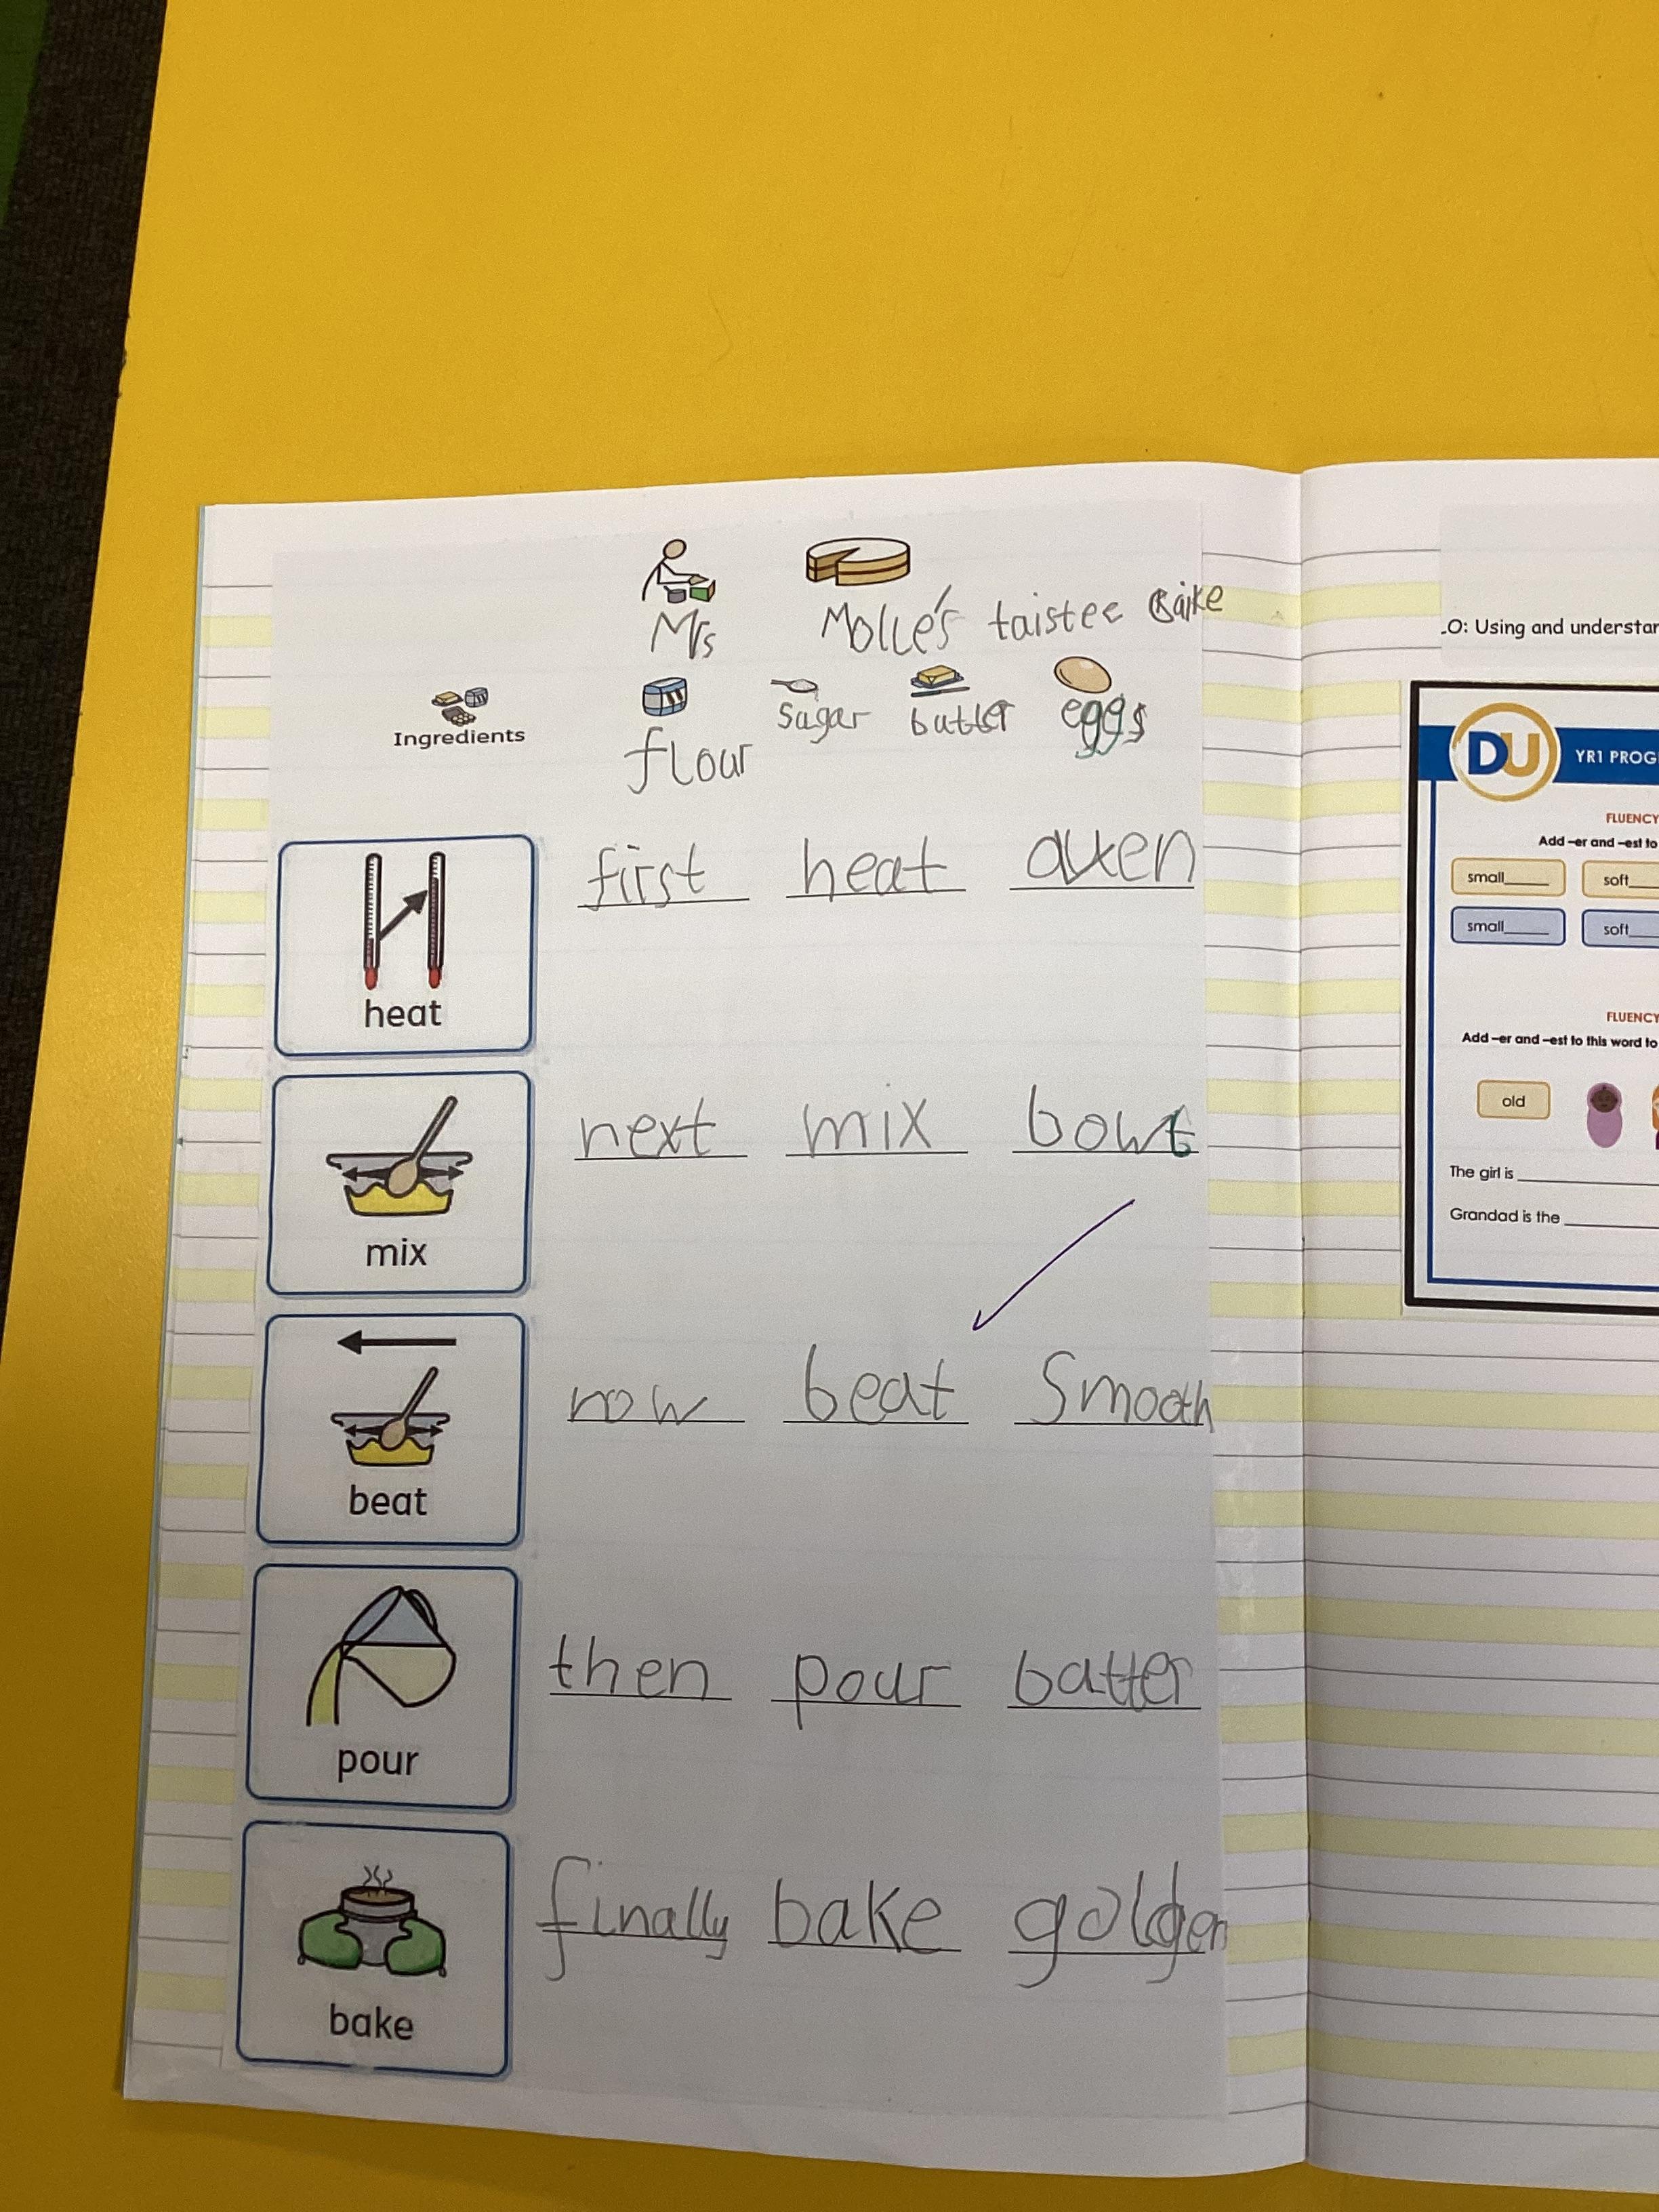 Mrs Molle's taistee Caike
Ingredients flour sugar butter eggs
heat
first heat oven
mix
next mix bowl
beat
now beat Smooth
pour
then pour batter
bake
finally bake golden
LO: Using and understan
DU YR1 PROG
FLUENCY
Add –er and –est to
small______ soft
small______ soft
FLUENCY
Add –er and –est to this word to
old
The girl is
Grandad is the